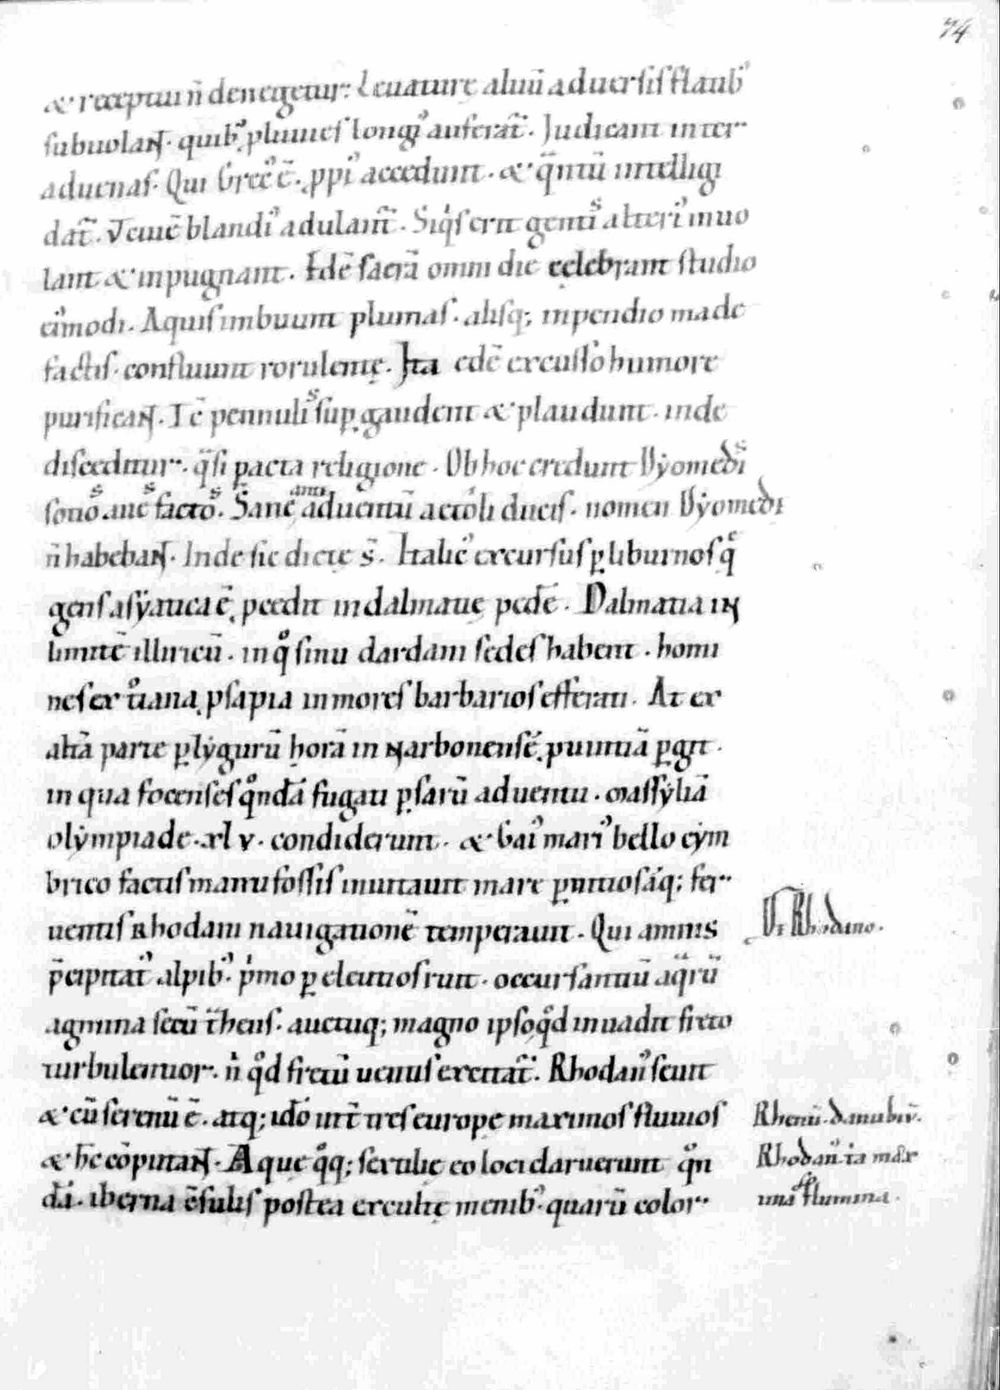 74
& receptui n̄ denegetur: Leuature aluū aduersis flatib᾽
subuolant. quib᾽ pluuiẹs longi᾽ auferat̄. Judicant inter
aduenas. Qui Grec᾽ ē. ꝓpi᾽ accedunt. & q̄ntū intelligi
dat̄. Ciuē blandi᾽ adulant̄. Siq͛s erit genti͛ alteri᾽ inuo
lant & inpugnant. Edē sacrā omni die celebrant studio
ei᾽modi. Aquis imbuunt plumas. alisq; inpendio made
factis. confluunt rorulentę. Ita edē excusso humore
purificant. Tē pennuli͛ suꝑ gaudent & plaudunt. inde
disceditur. q̄si pacta religione. Ob hoc credunt Dẏomedi͛
socio͛ aue͛ facto͛. Sanę ante aduentū aetoli ducis. nomen Dẏomedi
n̄ habebant. Inde sic dictę s̄. Italic᾽ excursus ꝑ liburnos q̄
gens asẏatica ē, ꝓcedit in dalmatię pedē. Dalmatia in
limitē illiricū. in q͛ sinu dardani sedes habent. homi
nes ex t͛iana ꝓsapia in mores barbaros efferati. At ex
aliā parte ꝑ lẏgurū horā in narbonensē ꝓuintiā ꝑgit.
in qua focenses q͛ndā fugati ꝑsarū aduentu. massẏliā
olẏmpiade. xlv. condiderunt. & Gai᾽ mari᾽ bello cẏm
brico factis manu fossis inuitauit mare ꝑnitiosāq; fer
uentis Rhodani nauigationē temperauit. Qui amnis
p̄cipitat᾽ alpib᾽. p͛mo ꝑ eluetios ruit. occursantiū aq̄rū
agmina secū t̄hens. auctuq; magno ipso q͛d inuadit freto
turbulentior. n͛ q͛d fretū uentis excitat̄. Rhodan᾽ seuit
& cū serenū ē. atq; id͛o int̄ tres europe maximos fluuios
& h̄c cōputant. Aque q͛q; sextilię eo loci claruerunt q͛n
dā. iberna c͛sulis postea excultę menib᾽. quarū color
De Rhodano.
Rhenū. danubiū.
Rhodan᾽. īa max
ima flumina.